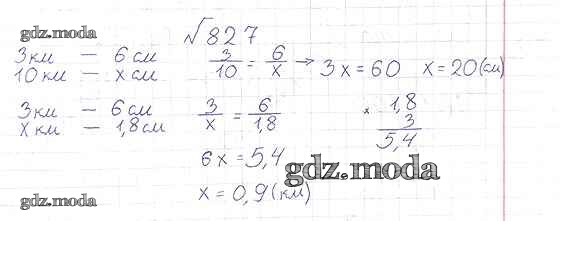 gdz.moda
√827
3 км — 6 см
10 км — x см
3/10 = 6/x → 3x = 60 x = 20 (см)
3 км — 6 см
x км — 1,8 см
3/x = 6/1,8
× 1,8
3
5,4
6x = 5,4
gdz.moda
x = 0,9 (км)
gdz.moda